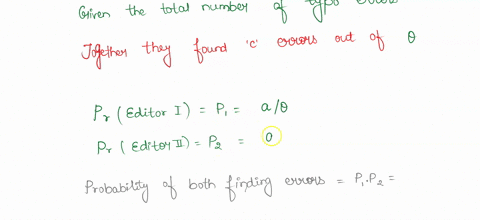 Given the total number of typo errors
Together they found 'c' errors out of θ
Pr (Editor I) = P1 = a/θ
Pr (Editor II) = P2 = 0
Probability of both finding errors = P1.P2 =